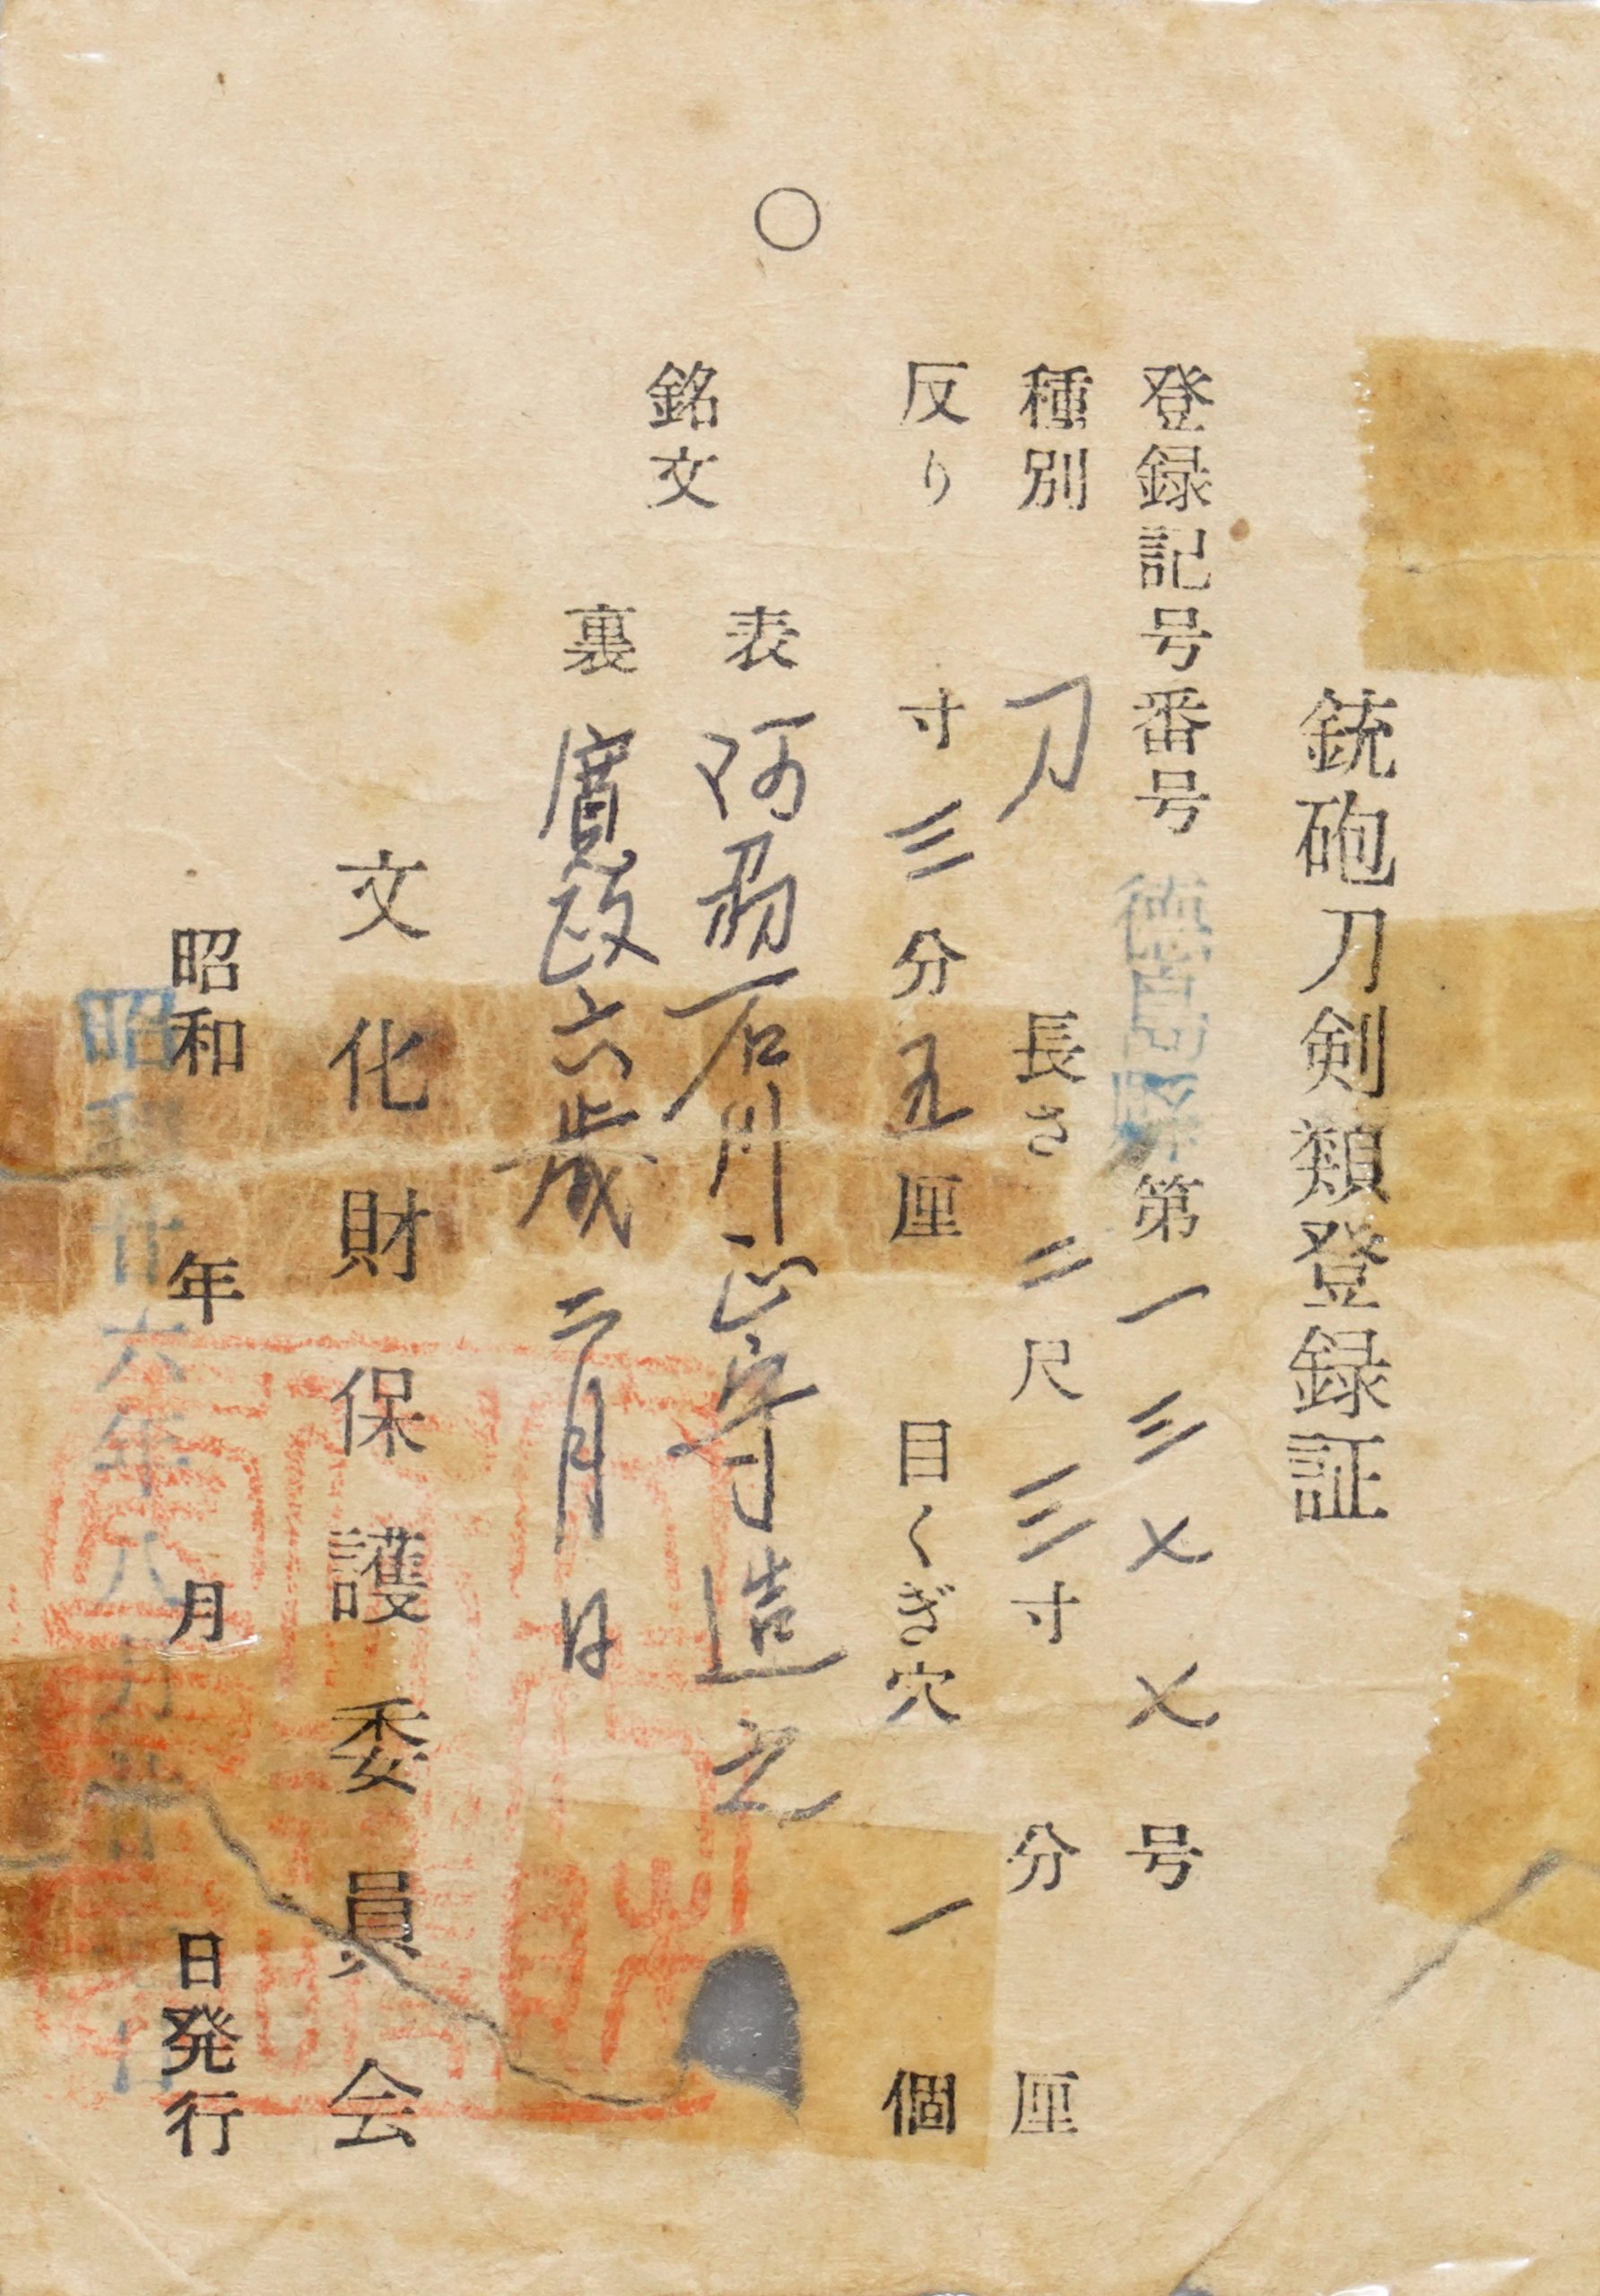 銃砲刀剣類登録証
登録記号番号 徳島県 第一三七七号
種別 刀 長さ 二尺三寸 分 厘
反り 寸三分五厘 目くぎ穴 一個
銘文
表 阿刕石川正守造之
裏 寛政六歳二月日
文化財保護委員会
昭和 年 月 日発行
昭和廿六年八月